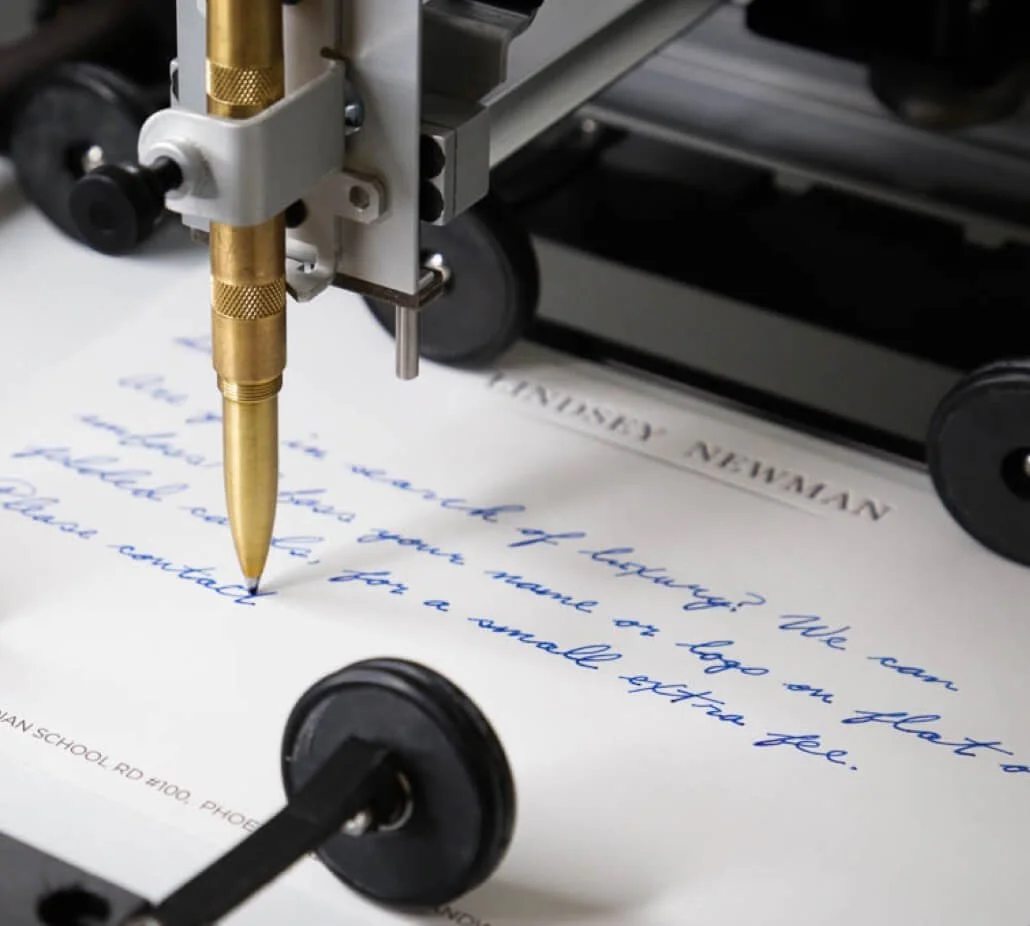 LINDSEY NEWMAN
Are in search of luxury? We can
your name or logo on flat
folded cards, for a small extra fee.
Please contact
IAN SCHOOL RD #100, PHOE